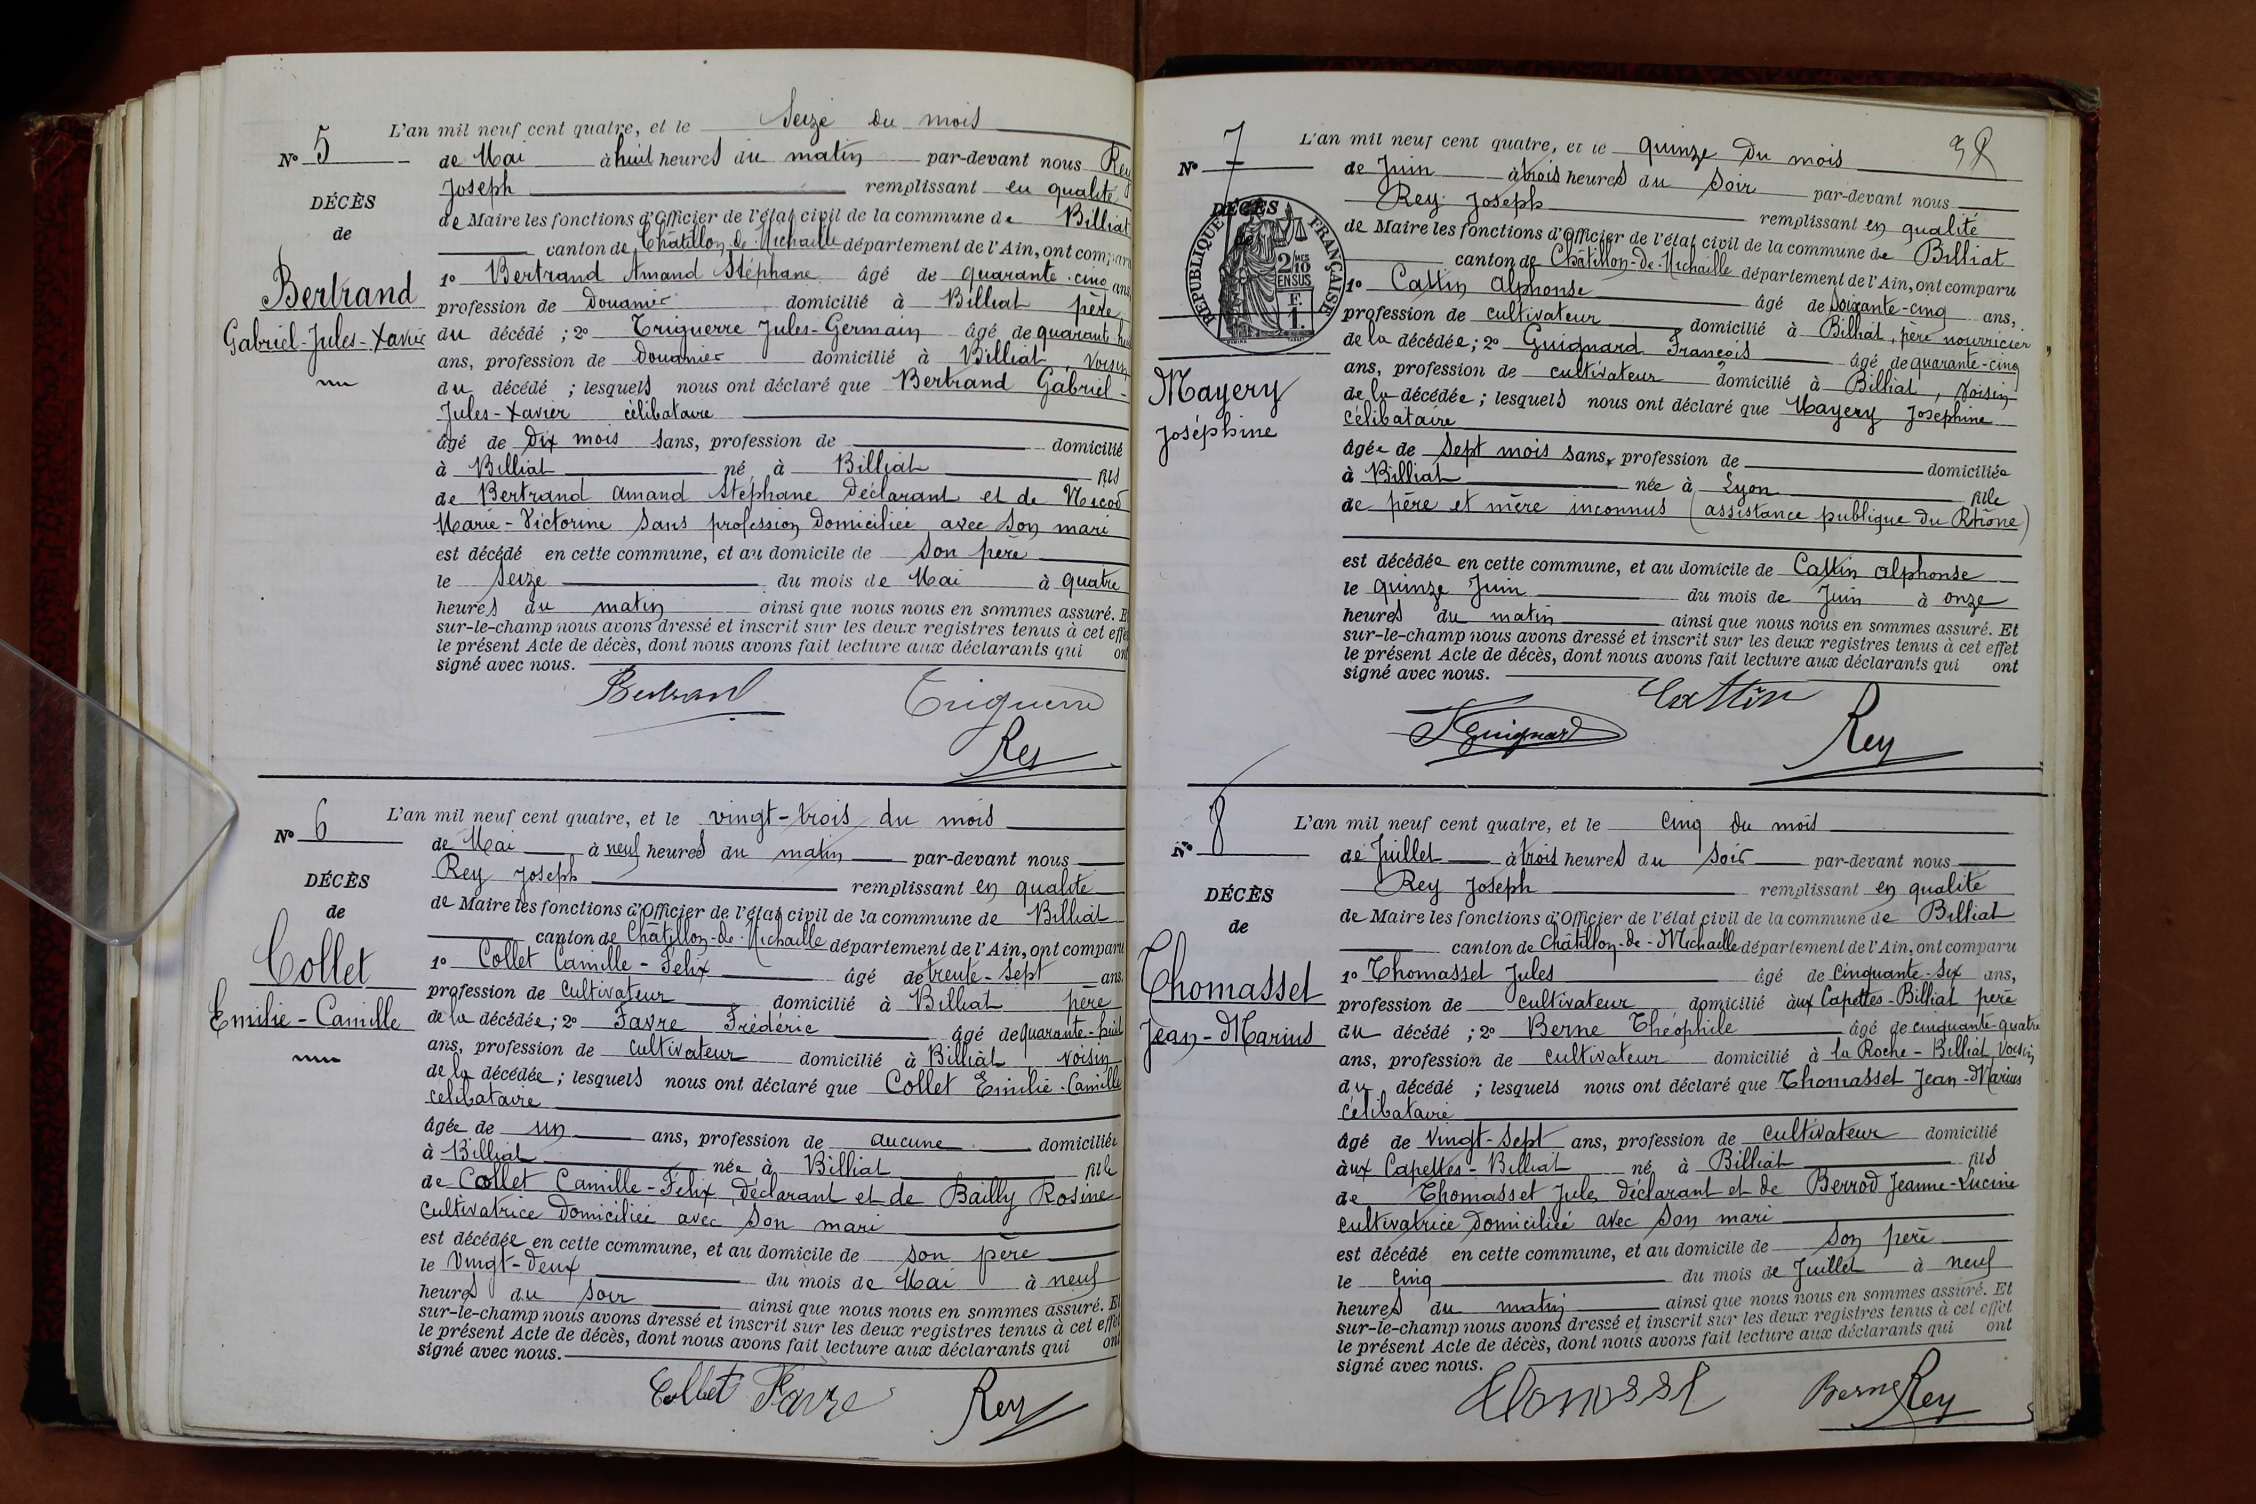 L'an mil neuf cent quatre, et le Seize du mois
N° 5 de Mai à huit heures du matin par-devant nous Rey
Joseph remplissant en qualité
DÉCÈS
de Maire les fonctions d'Officier de l'état civil de la commune de Billiat
de
canton de Châtillon-de-Michaille département de l'Ain, ont comparu
1° Bertrand Amand Stéphane âgé de quarante-cinq ans,
Bertrand
profession de Douanier domicilié à Billiat père
Gabriel-Jules-Xavier
du décédé ; 2° Triguerre Jules-Germain âgé de quarante-huit
ans, profession de Douanier domicilié à Billiat, Voisin
du décédé ; lesquels nous ont déclaré que Bertrand Gabriel-
Jules-Xavier célibataire
âgé de Dix mois sans, profession de domicilié
à Billiat né à Billiat fils
de Bertrand Amand Stéphane Déclarant et de Nicod
Marie-Victorine sans profession Domiciliée avec son mari
est décédé en cette commune, et au domicile de son père
le Seize du mois de Mai à quatre
heures du matin ainsi que nous nous en sommes assuré. Et
sur-le-champ nous avons dressé et inscrit sur les deux registres tenus à cet effet
le présent Acte de décès, dont nous avons fait lecture aux déclarants qui ont
signé avec nous.
Bertrand Triguerre
Rey
L'an mil neuf cent quatre, et le vingt-trois du mois
N° 6 de Mai à neuf heures du matin par-devant nous
Rey Joseph remplissant en qualité
DÉCÈS
de Maire les fonctions d'Officier de l'état civil de la commune de Billiat
de
canton de Châtillon-de-Michaille département de l'Ain, ont comparu
Collet
1° Collet Camille-Félix âgé de trente-sept ans.
profession de cultivateur domicilié à Billiat père
Emilie-Camille
de la décédée; 2° Favre Frédéric âgé de quarante-huit
ans, profession de cultivateur domicilié à Billiat voisin
de la décédée ; lesquels nous ont déclaré que Collet Emilie-Camille
célibataire
âgée de un ans, profession de aucune domiciliée
à Billiat née à Billiat fille
de Collet Camille-Félix, déclarant et de Bailly Rosine
cultivatrice Domiciliée avec son mari
est décédée en cette commune, et au domicile de son père
le Vingt-Deux du mois de Mai à neuf
heures du soir ainsi que nous nous en sommes assuré. Et
sur-le-champ nous avons dressé et inscrit sur les deux registres tenus à cet effet
le présent Acte de décès, dont nous avons fait lecture aux déclarants qui ont
signé avec nous.
Collet Favre Rey
L'an mil neuf cent quatre, et le quinze du mois
N° 7 de Juin à trois heures du soir par-devant nous
Rey Joseph remplissant en qualité
DÉCÈS
de
RÉPUBLIQUE FRANÇAISE
2/10 EN SUS
F. 1.
de Maire les fonctions d'Officier de l'état civil de la commune de Billiat
canton de Châtillon-de-Michaille département de l'Ain, ont comparu
1° Cattin Alphonse âgé de soixante-cinq ans,
profession de cultivateur domicilié à Billiat, père nourricier
de la décédée; 2° Guignard François âgé de quarante-cinq
Mayery
ans, profession de cultivateur domicilié à Billiat, voisin
Joséphine
de la décédée; lesquels nous ont déclaré que Mayery Joséphine
célibataire
âgée de Sept mois sans, profession de domiciliée
à Billiat née à Lyon fille
de père et mère inconnus (assistance publique du Rhône)
est décédée en cette commune, et au domicile de Cattin Alphonse
le quinze Juin du mois de Juin à onze
heures du matin ainsi que nous nous en sommes assuré. Et
sur-le-champ nous avons dressé et inscrit sur les deux registres tenus à cet effet
le présent Acte de décès, dont nous avons fait lecture aux déclarants qui ont
signé avec nous.
Cattin
Guignard Rey
L'an mil neuf cent quatre, et le cinq du mois
N° 8 de Juillet à trois heures du soir par-devant nous
Rey Joseph remplissant en qualité
DÉCÈS
de Maire les fonctions d'Officier de l'état civil de la commune de Billiat
de
canton de Châtillon-de-Michaille département de l'Ain, ont comparu
Thomasset
1° Thomasset Jules âgé de cinquante-six ans,
profession de cultivateur domicilié aux Capettes-Billiat père
Jean-Marius
du décédé ; 2° Berne Théophile âgé de cinquante-quatre
ans, profession de cultivateur domicilié à la Roche-Billiat, voisin
du décédé ; lesquels nous ont déclaré que Thomasset Jean-Marius
célibataire
âgé de Vingt-sept ans, profession de cultivateur domicilié
aux Capettes-Billiat né à Billiat fils
de Thomasset Jules déclarant et de Berrod Jeanne-Lucine
cultivatrice Domiciliée avec son mari
est décédé en cette commune, et au domicile de son père
le cinq du mois de Juillet à neuf
heures du matin ainsi que nous nous en sommes assuré. Et
sur-le-champ nous avons dressé et inscrit sur les deux registres tenus à cet effet
le présent Acte de décès, dont nous avons fait lecture aux déclarants qui ont
signé avec nous.
Thomasset Berne Rey